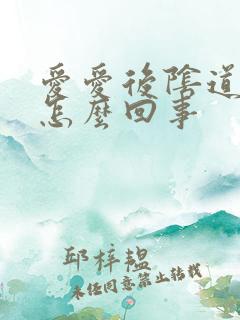 愛愛後陰道
怎麼回事
邱梓韞
未经同意禁止转载